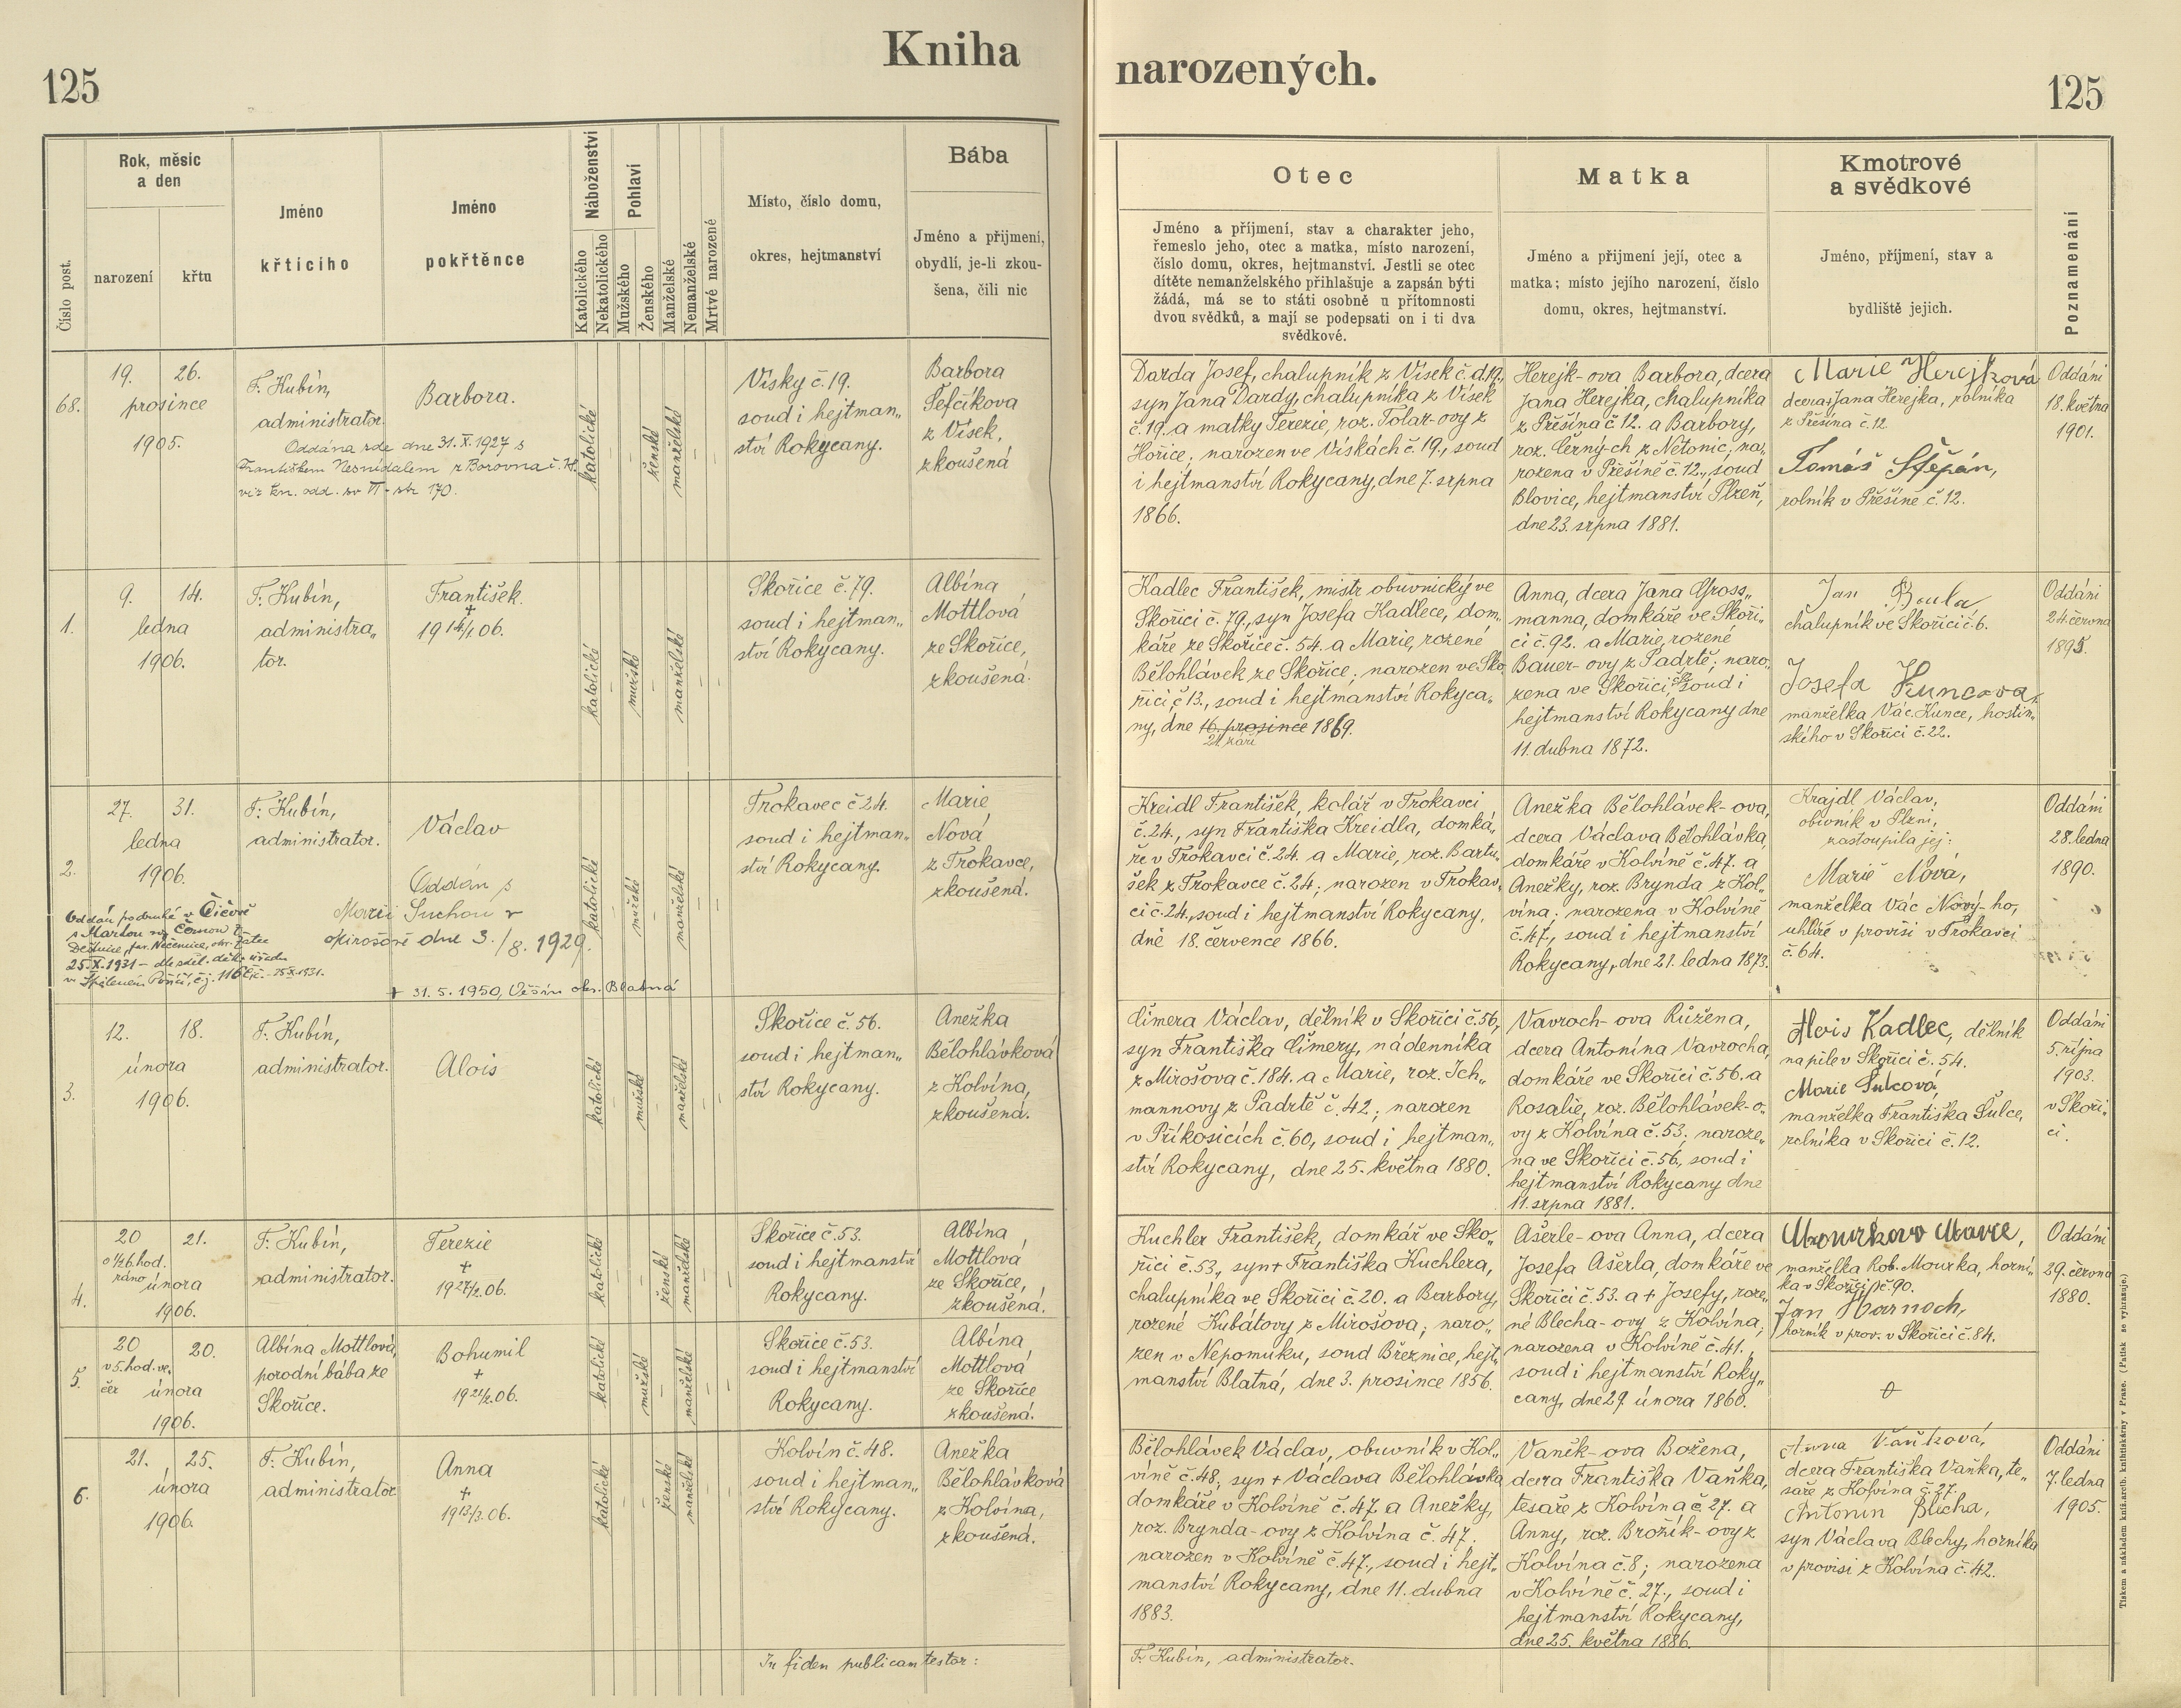 Kniha narozených.
125
125
Číslo post.
Rok, měsíc
a den
narození
křtu
Jméno
křtícího
Jméno
pokřtěnce
Náboženství
Katolického
Nekatolického
Pohlaví
Mužského
Ženského
Manželské
Nemanželské
Mrtvé narozené
Místo, číslo domu,
okres, hejtmanství
Bába
Jméno a přijmení,
obydlí, je-li zkou-
šena, čili nic
Otec
Jméno a příjmení, stav a charakter jeho,
řemeslo jeho, otec a matka, místo narození,
číslo domu, okres, hejtmanství. Jestli se otec
dítěte nemanželského přihlašuje a zapsán býti
žádá, má se to státi osobně u přítomnosti
dvou svědků, a mají se podepsati on i ti dva
svědkové.
Matka
Jméno a přijmení její, otec a
matka; místo jejího narození, číslo
domu, okres, hejtmanství.
Kmotrové
a svědkové
Jméno, příjmení, stav a
bydliště jejich.
Poznamenání
68.
19. 26.
prosince
1905.
F. Kubín,
administrator.
Barbora.
Oddána zde dne 31.X.1927 s
Františkem Nesnídalem z Borovna č.
viz kn. odd. sv VI - str 170.
katolické
ženské
manželské
Vísky č. 19.
soud i hejtman„
ství Rokycany.
Barbora
Šefčíkova
z Vísek,
zkoušená
Darda Josef, chalupník z Vísek č.d.19.,
syn Jana Dardy, chalupníka z Vísek
č. 19. a matky Terezie, roz. Tolar-ovy z
Hořice; narozen ve Vískách č. 19., soud
i hejtmanství Rokycany, dne 7. srpna
1866.
Herejk-ova Barbora, dcera
Jana Herejka, chalupníka
z Přešína č. 12. a Barbory,
roz. Černých z Netonic; na„
rozena v Přešíně č. 12., soud
Blovice, hejtmanství Plzeň,
dne 23. srpna 1881.
Marie Herejková
dcera Jana Herejka, rolníka
z Přešína č. 12.
Tomáš Štěpán,
rolník v Přešíně č. 12.
Oddáni
18. května
1901.
1.
9. 14.
ledna
1906.
F. Kubín,
administra„
tor.
František.
+
19 14/1 06.
katolické
mužské
manželské
Skořice č. 79.
soud i hejtman„
ství Rokycany.
Albína
Mottlová
ze Skořice,
zkoušená.
Kadlec František, mistr obuvnický ve
Skořici č. 79., syn Josefa Kadlece, dom„
káře ze Skořice č. 54. a Marie, rozené
Bělohlávek ze Skořice; narozen ve Sko„
řici č. 13., soud i hejtmanství Rokyca„
ny, dne 16. prosince 1869.
24. září
Anna, dcera Jana Gross„
manna, domkáře ve Skoři„
ci č. 92. a Marie, rozené
Bauer-ovy z Padrtě; naro„
zena ve Skořici, soud i
hejtmanství Rokycany dne
11. dubna 1872.
Jan Boula
chalupník ve Skořici č. 6.
Josefa Kuncova,
manželka Vác. Kunce, hostin„
ského v Skořici č. 22.
Oddáni
24. června
1895.
2.
27. 31.
ledna
1906.
F. Kubín,
administrator.
Václav
Oddán s
Marií Suchou v
Mirošově dne 3./8. 1929.
Oddán podruhé v Číčově
s Martou
25.X.1931
+ 31. 5. 1950, Věšín okr. Blatná
katolické
mužské
manželské
Trokavec č 24.
soud i hejtman„
ství Rokycany.
Marie
Nová
z Trokavce,
zkoušená.
Kreidl František, kolář v Trokavci
č. 24., syn Františka Kreidla, domká„
ře v Trokavci č. 24. a Marie, roz. Bartu„
šek z Trokavce č. 24; narozen v Trokav„
ci č. 24., soud i hejtmanství Rokycany,
dne 18. července 1866.
Anežka Bělohlávek-ova,
dcera Václava Bělohlávka,
domkáře v Kolvíně č. 47. a
Anežky, roz. Brynda z Kol„
vína; narozena v Kolvíně
č. 47., soud i hejtmanství
Rokycany, dne 21. ledna 1873.
Krajdl Václav,
obuvník v Plzni,
zastoupila jej:
Marie Nová,
manželka Vác Nový-ho,
uhlíře v provisi v Trokavci
č. 64.
Oddáni
28. ledna
1890.
3.
12. 18.
února
1906.
F. Kubín,
administrator.
Alois
katolické
mužské
manželské
Skořice č. 56.
soud i hejtman„
ství Rokycany.
Anežka
Bělohlávková
z Kolvína,
zkoušená.
Čimera Václav, dělník v Skořici č. 56,
syn Františka Čimery, nádenníka
z Mirošova č. 184. a Marie, roz. Ich„
mannovy z Padrtě č. 42; narozen
v Příkosicích č. 60., soud i hejtman„
ství Rokycany, dne 25. května 1880.
Vavroch-ova Růžena,
dcera Antonína Vavrocha,
domkáře ve Skořici č. 56. a
Rosalie, roz. Bělohlávek-o„
vy z Kolvína č. 53; naroze„
na ve Skořici č. 56., soud i
hejtmanství Rokycany dne
11. srpna 1881.
Alois Kadlec, dělník
na pile v Skořici č. 54.
Marie Šulcová,
manželka Františka Šulce,
rolníka v Skořici č. 12.
Oddáni
5. října
1903.
v Skoři„
ci.
4.
20 21.
o ½6. hod.
ráno února
1906.
F. Kubín,
administrator.
Terezie
+
19 27/2. 06.
katolické
ženské
manželské
Skořice č. 53.
soud i hejtmanství
Rokycany.
Albína
Mottlová
ze Skořice,
zkoušená.
Kuchler František, domkář ve Sko„
řici č. 53., syn + Františka Kuchlera,
chalupníka ve Skořici č. 20. a Barbory,
rozené Kubátovy z Mirošova; naro„
zen v Nepomuku, soud Březnice, hejt„
manství Blatná, dne 3. prosince 1856.
Ašerle-ova Anna, dcera
Josefa Ašerla, domkáře ve
Skořici č. 53. a + Josefy, roze„
né Blecha-ovy z Kolvína;
narozena v Kolvíně č. 41.,
soud i hejtmanství Roky„
cany, dne 27 února 1860.
Mourkova Marie,
manželka Rob. Mourka, horní„
ka v Skořici č. 90.
Jan Harnoch,
horník v prov. v Skořici č. 84.
Oddáni
29. června
1880.
5.
20 20.
v 5. hod. ve„
čer února
1906.
Albína Mottlová,
porodní bába ze
Skořice.
Bohumil
+
19 21/2. 06.
katolické
mužské
manželské
Skořice č. 53.
soud i hejtmanství
Rokycany.
Albína
Mottlová
ze Skořice
zkoušená.
6.
21. 25.
února
1906.
F. Kubín,
administrator
Anna
+
19 13/3. 06.
katolické
ženské
manželské
Kolvín č. 48.
soud i hejtman„
ství Rokycany.
Anežka
Bělohlávková
z Kolvína,
zkoušená.
Bělohlávek Václav, obuvník v Kol„
víně č. 48; syn + Václava Bělohlávka
domkáře v Kolvíně č. 47. a Anežky,
roz. Brynda-ovy z Kolvína č. 47.
narozen v Kolvíně č. 47., soud i hejt„
manství Rokycany, dne 11. dubna
1883.
Vaněk-ova Božena,
dcera Františka Vaňka,
tesaře z Kolvína č. 27. a
Anny, roz. Brožík-ovy z
Kolvína č. 8; narozena
v Kolvíně č. 27., soud i
hejtmanství Rokycany,
dne 25. května 1886.
Anna Vaňková,
dcera Františka Vaňka, te„
saře z Kolvína č. 27.
Antonín Blecha,
syn Václava Blechy, horníka
v provisi z Kolvína č. 42.
Oddáni
7. ledna
1905.
In fidem publicam testor:
F. Kubín, administrator.
Tiskem a nákladem kníž.arcib. knihtiskárny v Praze. (Patisk se vyhrazuje.)